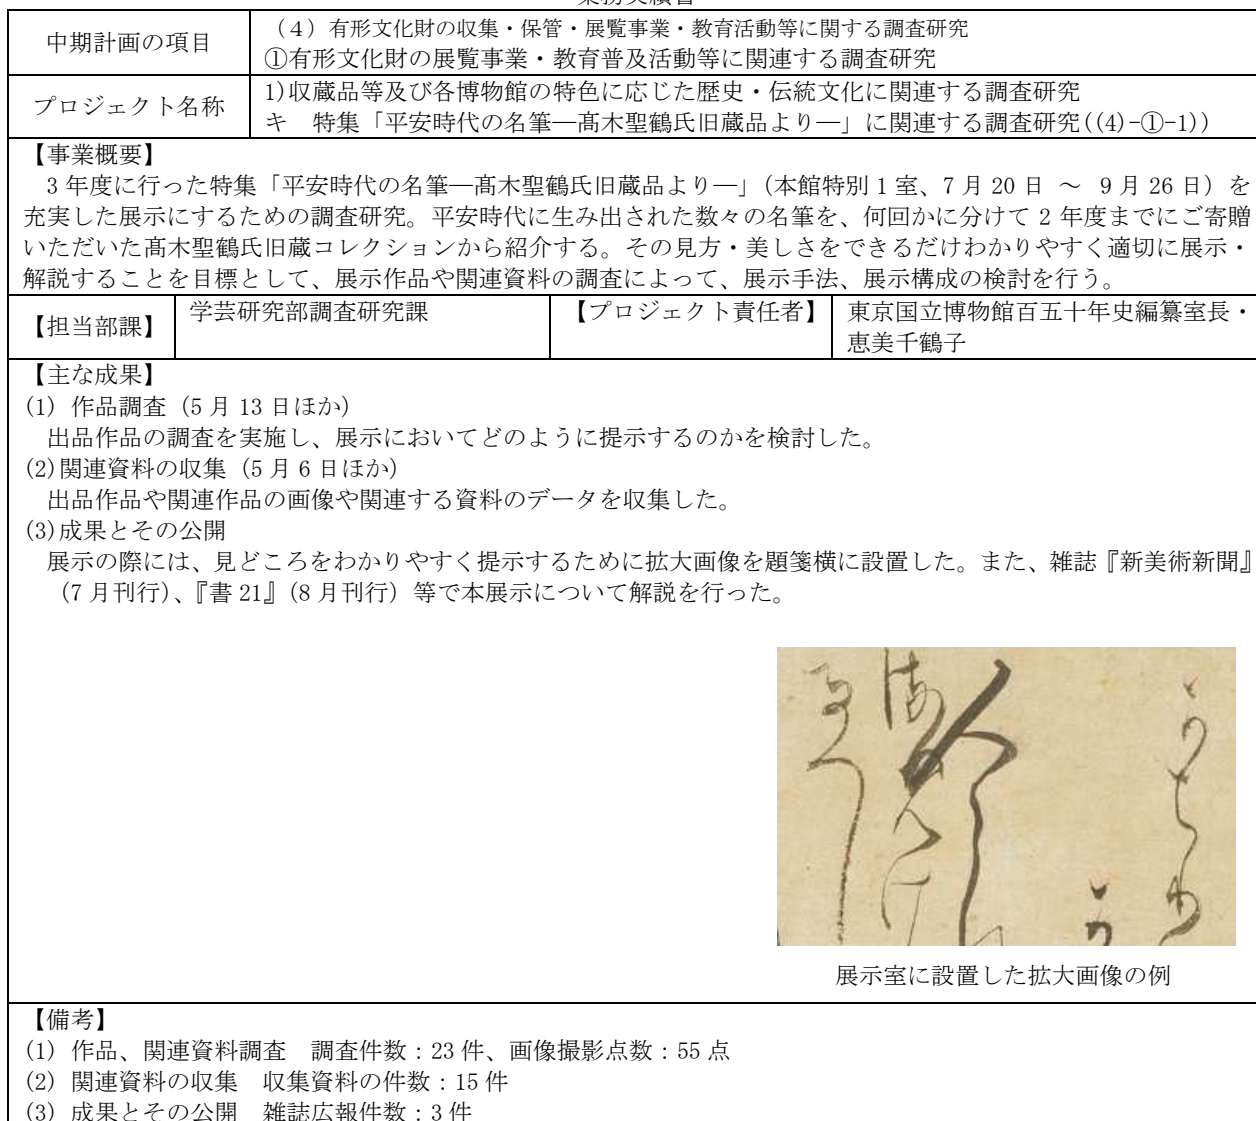 中期計画の項目
（４）有形文化財の収集・保管・展覧事業・教育活動等に関する調査研究
①有形文化財の展覧事業・教育普及活動等に関連する調査研究
プロジェクト名称
1)収蔵品等及び各博物館の特色に応じた歴史・伝統文化に関連する調査研究
キ　特集「平安時代の名筆―髙木聖鶴氏旧蔵品より―」に関連する調査研究((4)-①-1))
【事業概要】
３年度に行った特集「平安時代の名筆―髙木聖鶴氏旧蔵品より―」（本館特別1室、7月20日 ～ 9月26日）を
充実した展示にするための調査研究。平安時代に生み出された数々の名筆を、何回かに分けて2年度までにご寄贈
いただいた髙木聖鶴氏旧蔵コレクションから紹介する。その見方・美しさをできるだけわかりやすく適切に展示・
解説することを目標として、展示作品や関連資料の調査によって、展示手法、展示構成の検討を行う。
【担当部課】
学芸研究部調査研究課
【プロジェクト責任者】
東京国立博物館百五十年史編纂室長・
恵美千鶴子
【主な成果】
(1) 作品調査（5月13日ほか）
出品作品の調査を実施し、展示においてどのように提示するのかを検討した。
(2)関連資料の収集（5月6日ほか）
出品作品や関連作品の画像や関連する資料のデータを収集した。
(3)成果とその公開
展示の際には、見どころをわかりやすく提示するために拡大画像を題箋横に設置した。また、雑誌『新美術新聞』
（7月刊行）、『書21』（8月刊行）等で本展示について解説を行った。
展示室に設置した拡大画像の例
【備考】
(1) 作品、関連資料調査　調査件数：23件、画像撮影点数：55点
(2) 関連資料の収集　収集資料の件数：15件
(3) 成果とその公開　雑誌広報件数：3件